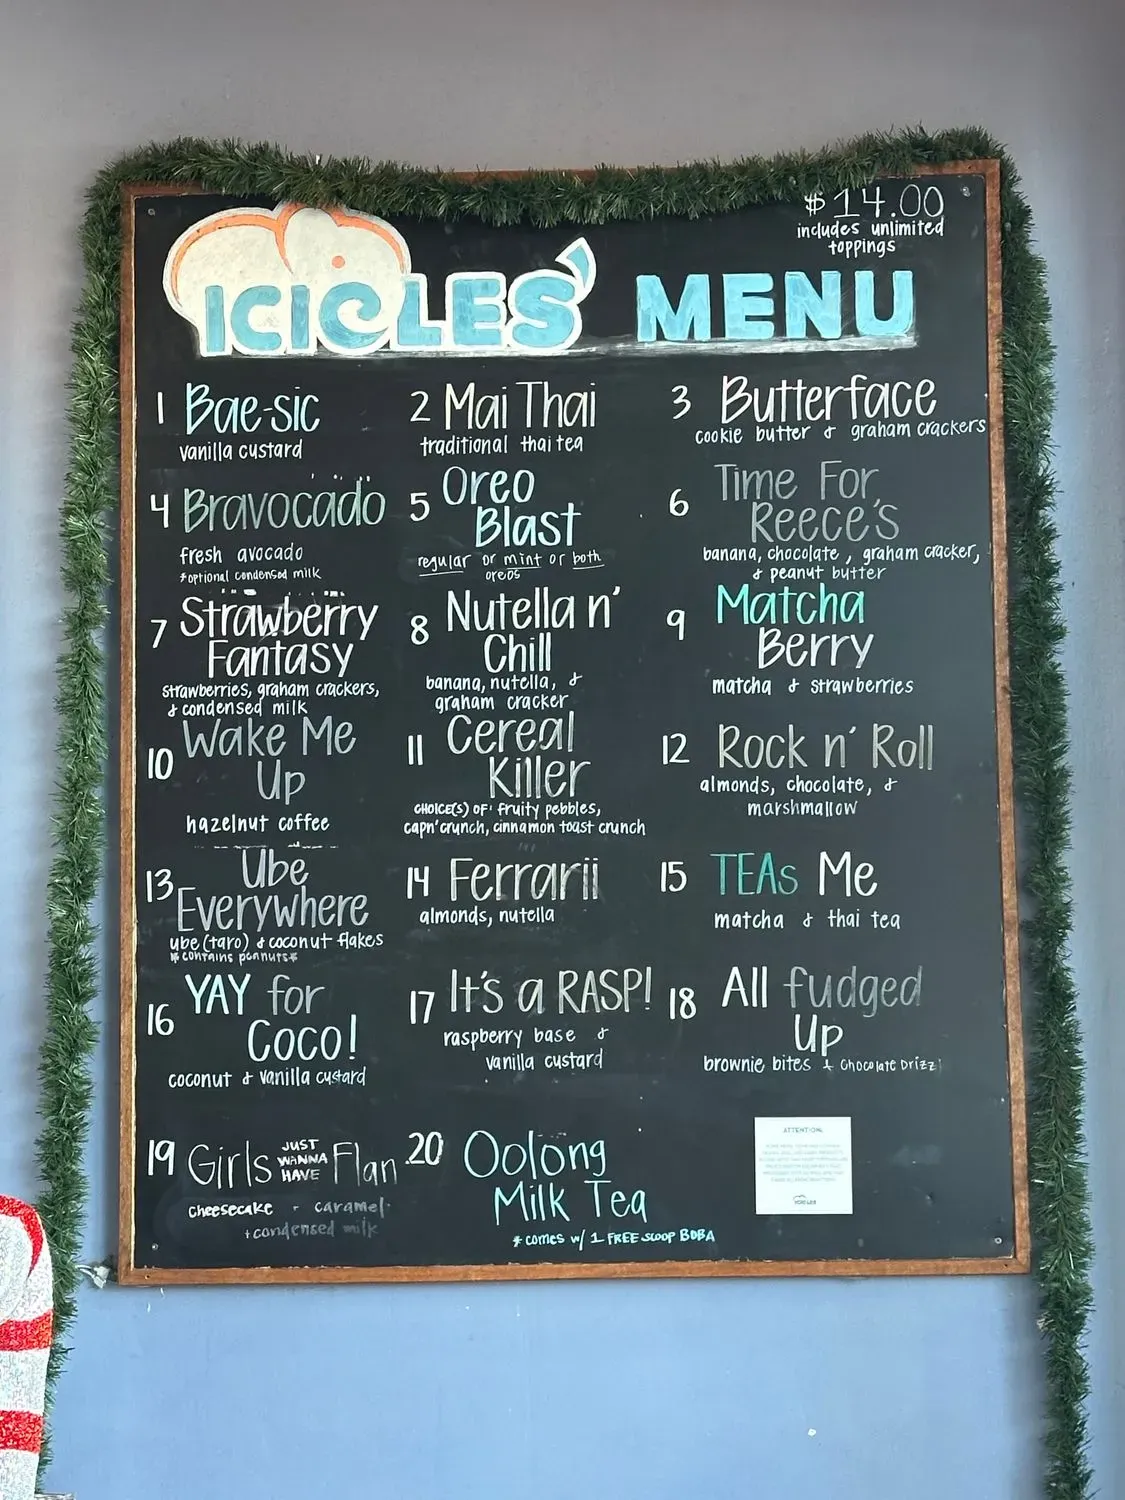 $14.00
includes unlimited
toppings
ICICLES' MENU
1 Bae-sic
vanilla custard
2 Mai Thai
traditional thai tea
3 Butterface
cookie butter & graham crackers
4 Bravocado
fresh avocado
*optional condensed milk
5 Oreo
Blast
regular or mint or both
oreos
6 Time For
Reece's
banana, chocolate, graham cracker,
& peanut butter
7 Strawberry
Fantasy
strawberries, graham crackers,
& condensed milk
8 Nutella n'
Chill
banana, nutella, &
graham cracker
9 Matcha
Berry
matcha & strawberries
10 Wake Me
Up
hazelnut coffee
11 Cereal
Killer
CHOICE(S) OF: fruity pebbles,
capn'crunch, cinnamon toast crunch
12 Rock n' Roll
almonds, chocolate, &
marshmallow
13 Ube
Everywhere
ube (taro) & coconut flakes
*contains peanuts*
14 Ferrarii
almonds, nutella
15 TEAs Me
matcha & thai tea
16 YAY for
Coco!
coconut & vanilla custard
17 It's a RASP!
raspberry base &
vanilla custard
18 All fudged
Up
brownie bites + Chocolate Drizzl
19 Girls JUST WANNA HAVE Flan
cheesecake + caramel
+condensed milk
20 Oolong
Milk Tea
* comes w/ 1 FREE SCOOP BOBA
ATTENTION:
ICICLES